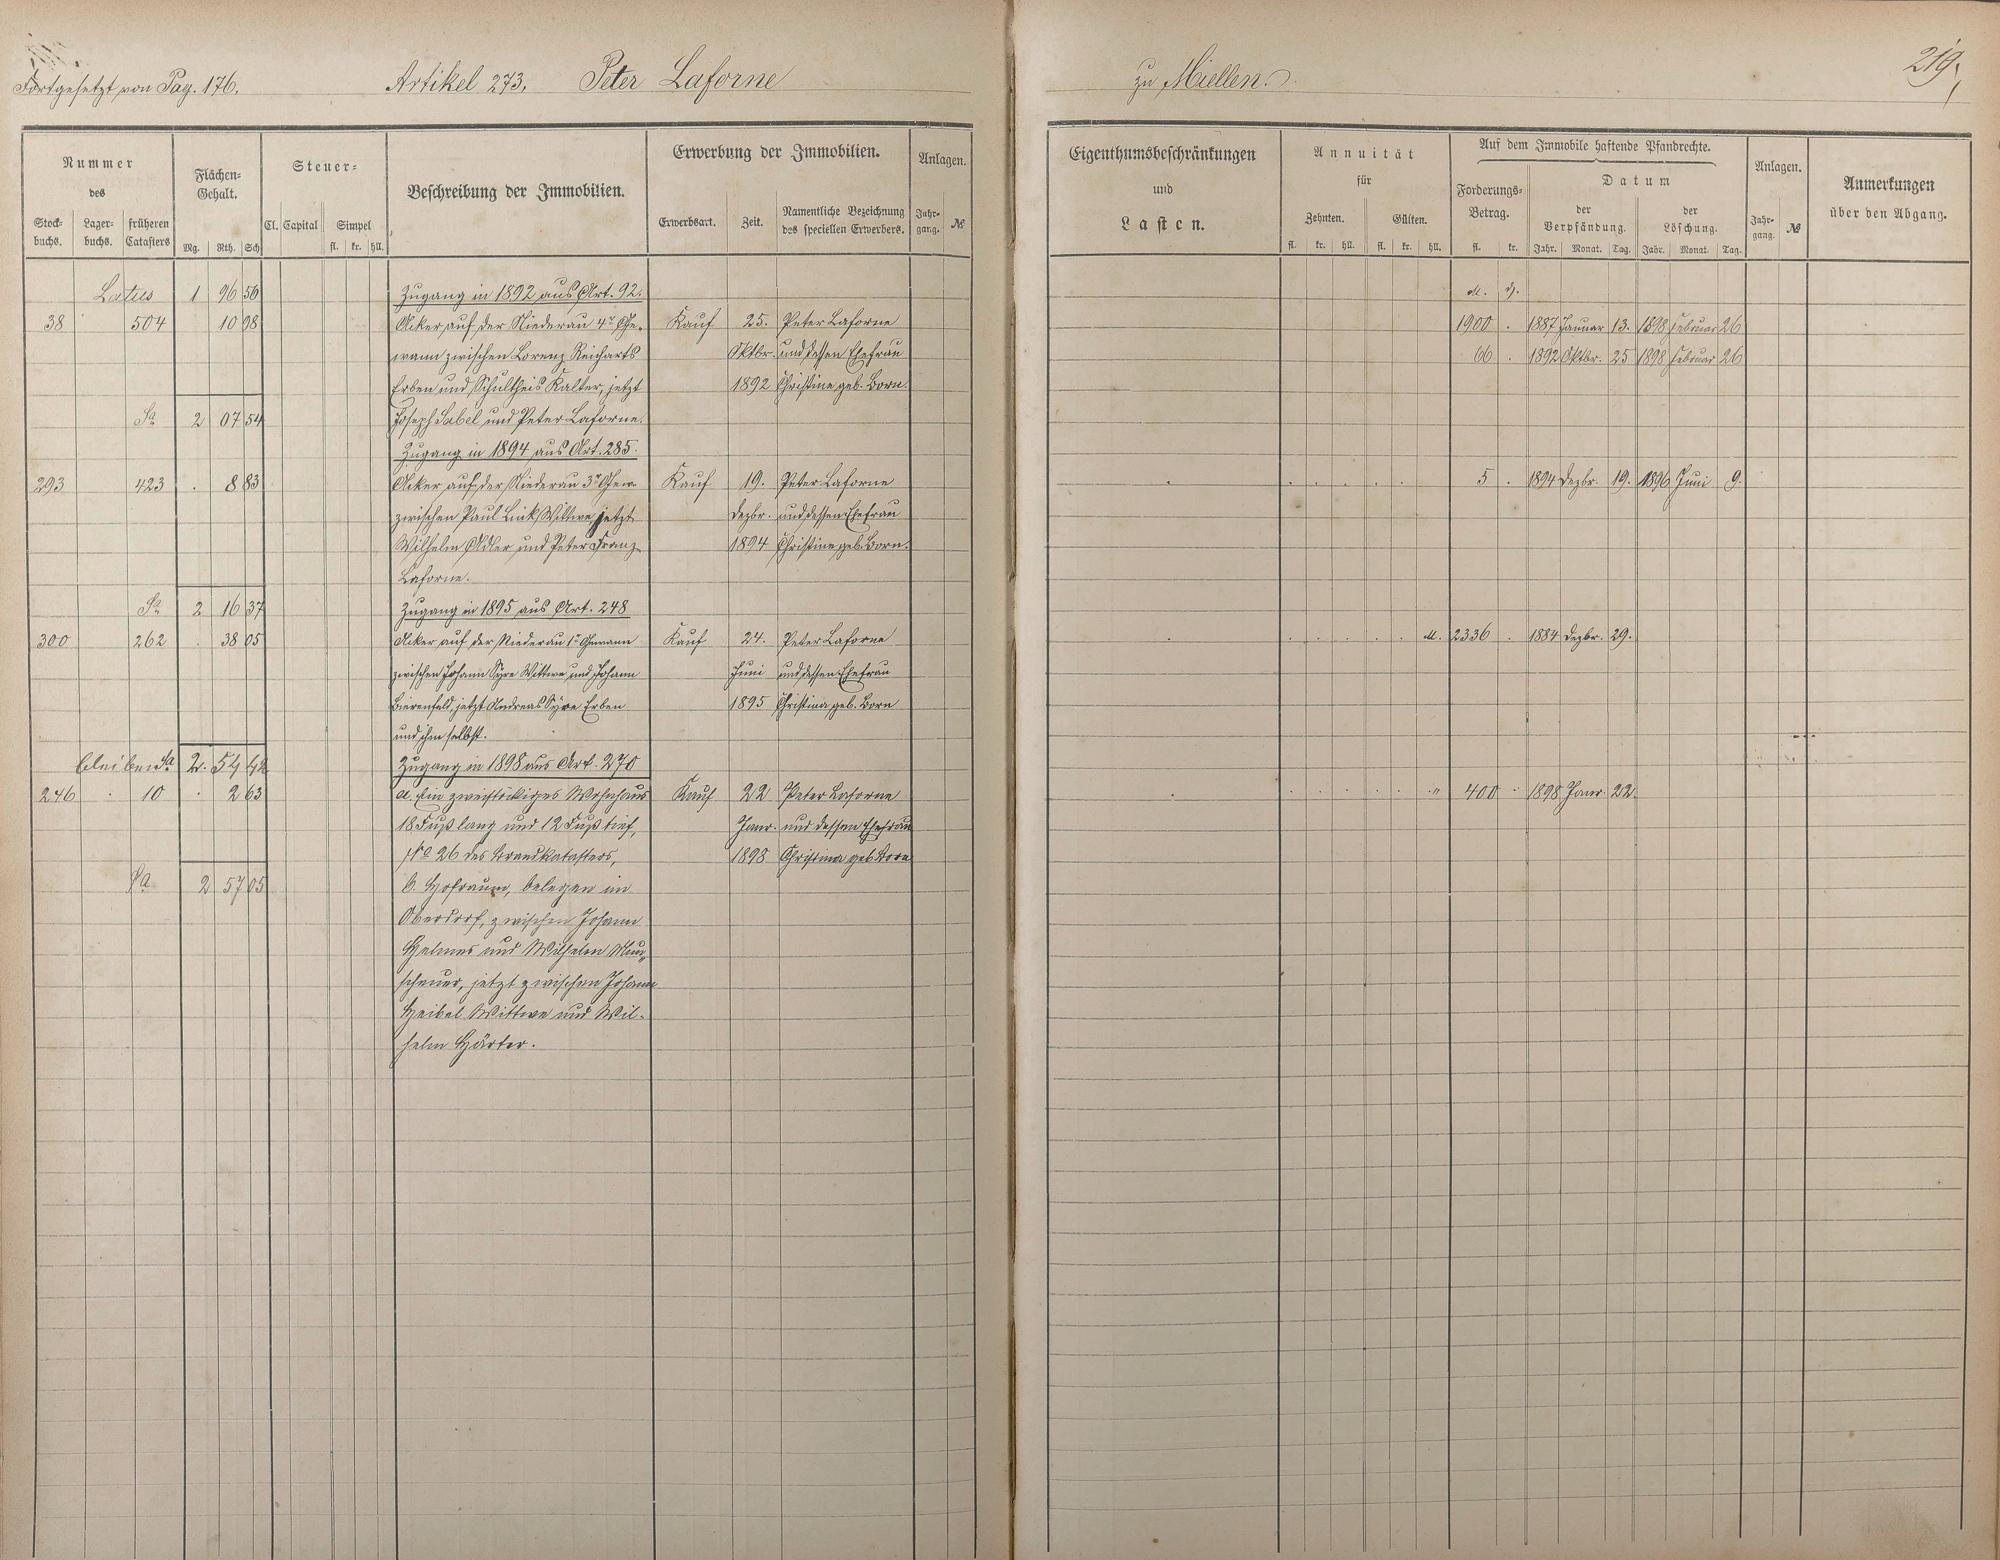 Fortgesetzt von Pag. 176. Artikel 273. Peter Laforne zu Miellen. 219.
Nummer des
Stock-buchs. Lager-buchs. früheren Catasters
Flächen-Gehalt.
Mg. Rth. Sch
Steuer-
Cl. Capital Simpel
fl. kr. hll.
Beschreibung der Immobilien.
Erwerbung der Immobilien.
Erwerbsart. Zeit. Namentliche Bezeichnung des speciellen Erwerbers.
Anlagen.
Jahr-gang. №
Eigenthumsbeschränkungen
und
Lasten.
Annuität
für
Zehnten. Gülten.
fl. kr. hll. fl. kr. hll.
Auf dem Immobile haftende Pfandrechte.
Forderungs-Betrag.
fl. kr.
Datum
der Verpfändung. der Löschung.
Jahr. Monat. Tag. Jahr. Monat. Tag.
Anlagen.
Jahr-gang. №
Anmerkungen
über den Abgang.
Latus 1 96 56 Zugang in 1892 aus Art. 92. M.
38 504 10 98 Acker auf der Niederau 4r Ge- Kauf 25. Peter Laforne 1900 . 1887 Januar 13. 1898 Februar 26
wann zwischen Lorenz Reicharts Oktbr. und dessen Ehefrau 66 . 1892 Oktbr. 25 1898 Februar 26
Erben und Schultheis Kalter, jetzt 1892 Christine geb. Born.
Sa 2 07 54 Joseph Sabel und Peter Laforne.
Zugang in 1894 aus Art. 285.
293 423 . 8 83 Acker auf der Niederau 3r Gew. Kauf 19. Peter Laforne 5 . 1894 Dezbr. 19. 1896 Juni 9.
zwischen Paul Link Wittwe, jetzt Dezbr. und dessen Ehefrau
Wilhelm Adler und Peter Franz 1894 Christine geb. Born.
Laforne.
Sa 2 16 37 Zugang in 1895 aus Art. 248
300 262 . 38 05 Acker auf der Niederau 1r Gewann Kauf 24. Peter Laforne M. 2336 . 1884 Dezbr. 29.
zwischen Johann Syre Wittwe und Johann Juni und dessen Ehefrau
Bierenfeld, jetzt Andreas Syre Erben 1895 Christina geb. Born
und ihm selbst.
bleiben Sa 2. 54 42 Zugang in 1898 aus Art. 270
246 . 10 . 2 63 a. Ein zweistöckiges Wohnhaus Kauf 22 Peter Laforne " 400 . 1898 Janr. 22.
18 Fuß lang und 12 Fuß tief, Janr. und dessen Ehefrau
No 26 des Brandkatasters, 1898 Christina geb. Born
Sa 2 57 05 b. Hofraum, belegen im
Oberdorf, zwischen Johann
Helmes und Wilhelm Mau-
scheuer, jetzt zwischen Johann
Heibel Wittwe und Wil-
helm Härter.